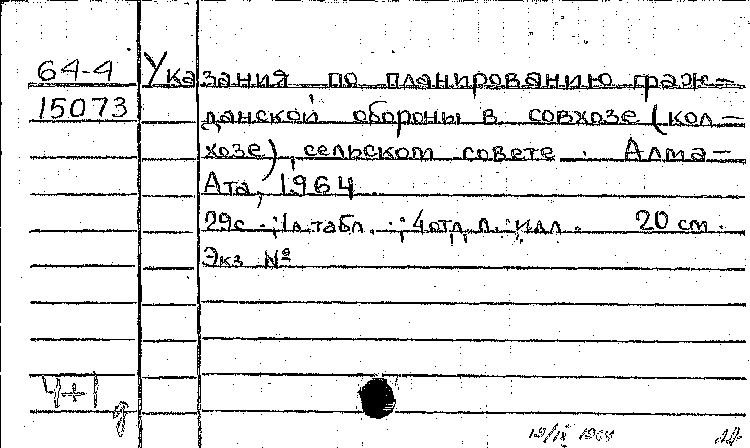 64-4 Указания по планированию граж-
15073 данской обороны в совхозе (кол-
хозе), сельском совете. Алма-
Ата, 1964.
29с.; 1л. табл.; 4 отд. л. илл. 20 см.
Экз №
4+1
19/IX 1964